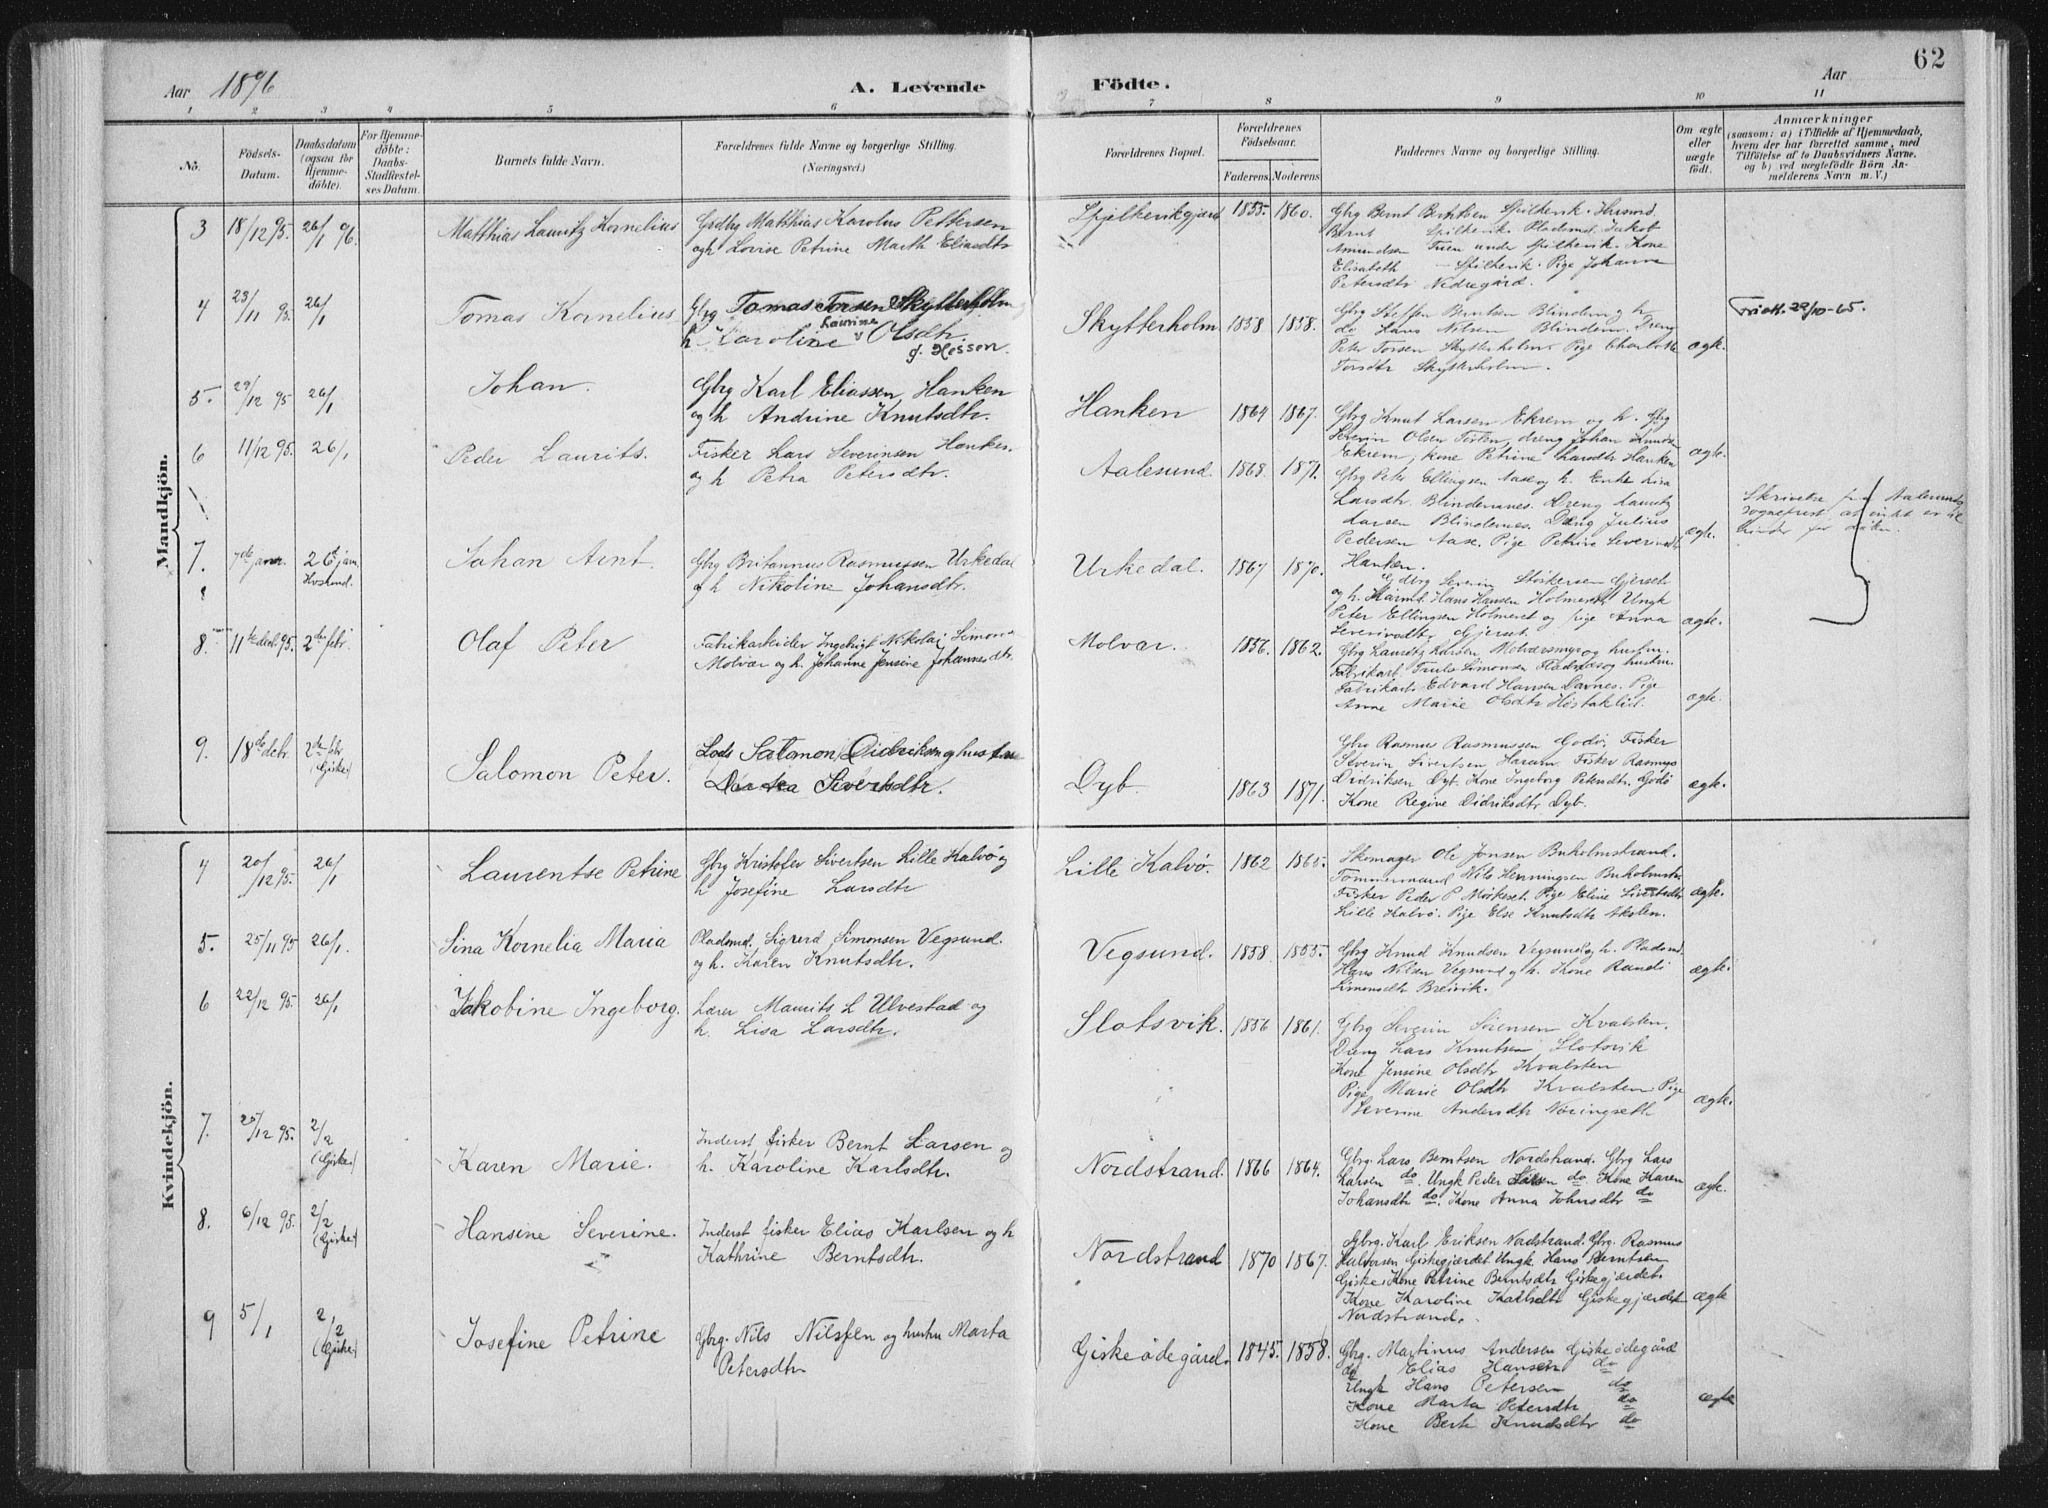 62
Aar 1896 A. Levende Födte. Aar
1 2 3 4 5 6 7 8 9 10 11
No. Födsels-Datum. Daabsdatum (ogsaa for Hjemme-döbte). For Hjemme-döbte: Daabs-Stadfæstel-ses Datum. Barnets fulde Navn. Forældrenes fulde Navne og borgerlige Stilling. (Næringsvei.) Forældrenes Bopæl. Forældrenes Födselsaar. Faderens. Moderens. Faddernes Navne og borgerlige Stilling. Om ægte eller uægte födt. Anmærkninger (saasom: a) i Tilfælde af Hjemmedaab, hvem der har forrettet samme, med Tilföielse af to Daabsvidners Navne, og b) ved uægtefödte Börn An-melderens Navn m. V.)
Mandkjön.
3 18/12 95. 26/1 96. Matthias Lauritz Kornelius Matthias Karolus Pettersen
og h Lovise Petrine Marth Eliasdtr
Spilkevikgjærd 1855. 1860. Gbrg Bernt Berntsen Spilkevik. Husmd.
Bernt Spilkevik Pladsmd. Jakob
Amundsen Tuen under Spilkevik. Kone
Elisabeth - Spilkevik. Pige Johanne
Petersdtr Nedregård.
4 23/11 95. 26/1 Tomas Kornelius Gbrg Tomas Torsen Skytterholm
h Karoline Laurine Olsdtr.
f. Hessen.
Skytterholm 1858 1858. Gbrg Steffen Berntsen Blindem og h
do Hans Nilsen Blindem. Dreng
Peter Torsen Skytterholm. Pige Charlotte
Torsdtr Skytterholm. ægte.
Friatt. 22/10-65.
5. 29/12 95 26/1 Johan. Gbrg Karl Eliassen Hanken
og h Andrine Knutsdtr.
Hanken 1864 1867. Gbrg Knut Larsen Ekrem og h. Gbrg
Severin Olsen Testen, dreng Johan Knutsen
Ekrem, kone Petrine Larsdtr Hanken ægte.
6 11/12 95. 26/1 Peder Laurits. Fisker Lars Severinsen Hanken
og h Petra Petersdtr.
Aalesund. 1868. 1871. Gbrg Peter Ellingsen Aase og h. Enke Lisa
Larsdtr. Blindemnes. Dreng Lauritz
Larsen Blindemnes. Dreng Julius
Pedersen Aase. Pige Petrine Severinsdtr
Hanken. ægte.
Skrivelse fra Aalesunds
sogneprest at intet er til
hinder for dåben.
7. 7de janr. 26 jan. Hovland. Johan Arnt. Gbrg Britannus Rasmussen Urkedal
og h Nikoline Johansdtr.
Urkedal. 1867 1870. Gbrg Severin Størkersen Gjerset
og h. Kårmd. Hans Hansen Holmeset. Ungk
Peter Ellingsen Holmeset og pige Anna
Severinsdtr. Gjerset. ægte.
8. 11te decb 95. 2den febr. Olaf Peter Fabrikarbeider Ingebrigt Nikolaj Simons
Molvær og h. Johanne Jensine Johannesdtr.
Molvær. 1856. 1862. Gbrg Lauritz Larsen Molværsmyr og hustru.
Fabrikarb. Truls Simonsen Fladnes og hustru.
Fabrikarb. Edvard Hansen Davnes. Pige
Anne Marie Olsdtr Höstaklid. ægte.
9. 18de decbr. 2den febr (Giske) Salomon Peter. Lods Salomon Didriksen og hustru
Dorthea Sivertsdtr.
Dyb. 1863 1871. Gbrg Rasmus Rasmussen Godö. Fisker
Severin Sivertsen Haram. Fisker Rasmus
Didriksen Dyb. Kone Ingeborg Petersdtr. Godö
Kone Regine Didriksdtr Dyb. ægte.
Kvindekjön.
4 20/12 95. 26/1 Laurentse Petrine Gbrg Kristofer Sivertsen Lille Kalvö og
h Josefine Larsdtr
Lille Kalvö. 1862 1865. Skomager Ole Jonsen Buholmstrand.
Tømmermand Nils Henningsen Buholmstr.
Fisker Peder P Mörkeset. Pige Eline Sivertsdtr
Lille Kalvö. Pige Else Knutsdtr Skolen. ægte.
5. 25/11 95 26/1. Sina Kornelia Maria Pladsmd. Sigverd Simonsen Vegsund.
og h. Karen Knutsdtr.
Vegsund. 1858 1855. Gbrg Knud Knudsen Vegsund og h. Pladsmd.
Hans Nilsen Vegsund og h. Kone Randi
Simonsdtr Breivik. ægte.
6 22/12 95. 26/1 Jakobine Ingeborg. Lærer Maurits L Ulvestad og
h. Lisa Larsdtr.
Slotsvik. 1856 1861. Gbrg Severin Sörensen Kvalsten.
Dreng Lars Knutsen Slotsvik
Kone Jensine Olsdtr Kvalsten
Pige Marie Olsdtr Kvalsten. Pige
Severine Andersdtr Nöringseth ægte.
7. 25/12 95. 2/2 (Giske) Karen Marie. Inderst fisker Bernt Larsen og
h. Karoline Karlsdtr.
Nordstrand. 1866 1864. Gbrg. Lars Berntsen Nordstrand. Gbrg Lars
Larsen do. Ungk Peder Larsen do. Kone Karen
Johansdtr do. Kone Anna Johnsdtr do ægte.
8. 6/12 95. 2/2 (Giske) Hansine Severine. Inderst fisker Elias Karlsen og h
Kathrine Berntsdtr.
Nordstrand 1870 1867. Gbrg. Karl Eriksen Nordstrand. Gbrg. Rasmus
Halvorsen Giskegjerdet. Ungk Hans Berntsen
Giske. Kone Petrine Berntsdtr Giskegjærdet.
Kone Karoline Karlsdtr Giskegjærdet
Nordstrand. ægte
9 5/1 2/2 (Giske) Josefine Petrine Gbrg. Nils Nilssen og hustru Marta
Petersdtr
Giskeødegård. 1845. 1858. Gbrg. Martinus Andersen Giskeødegård
do Elias Hansen do
Ungk Hans Petersen do
Kone Marta Petersdtr do
Kone Berte Knudsdtr do ægte